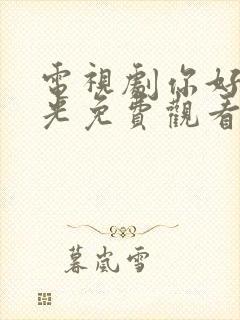 電視劇你好
光免費觀看
暮嵐雪